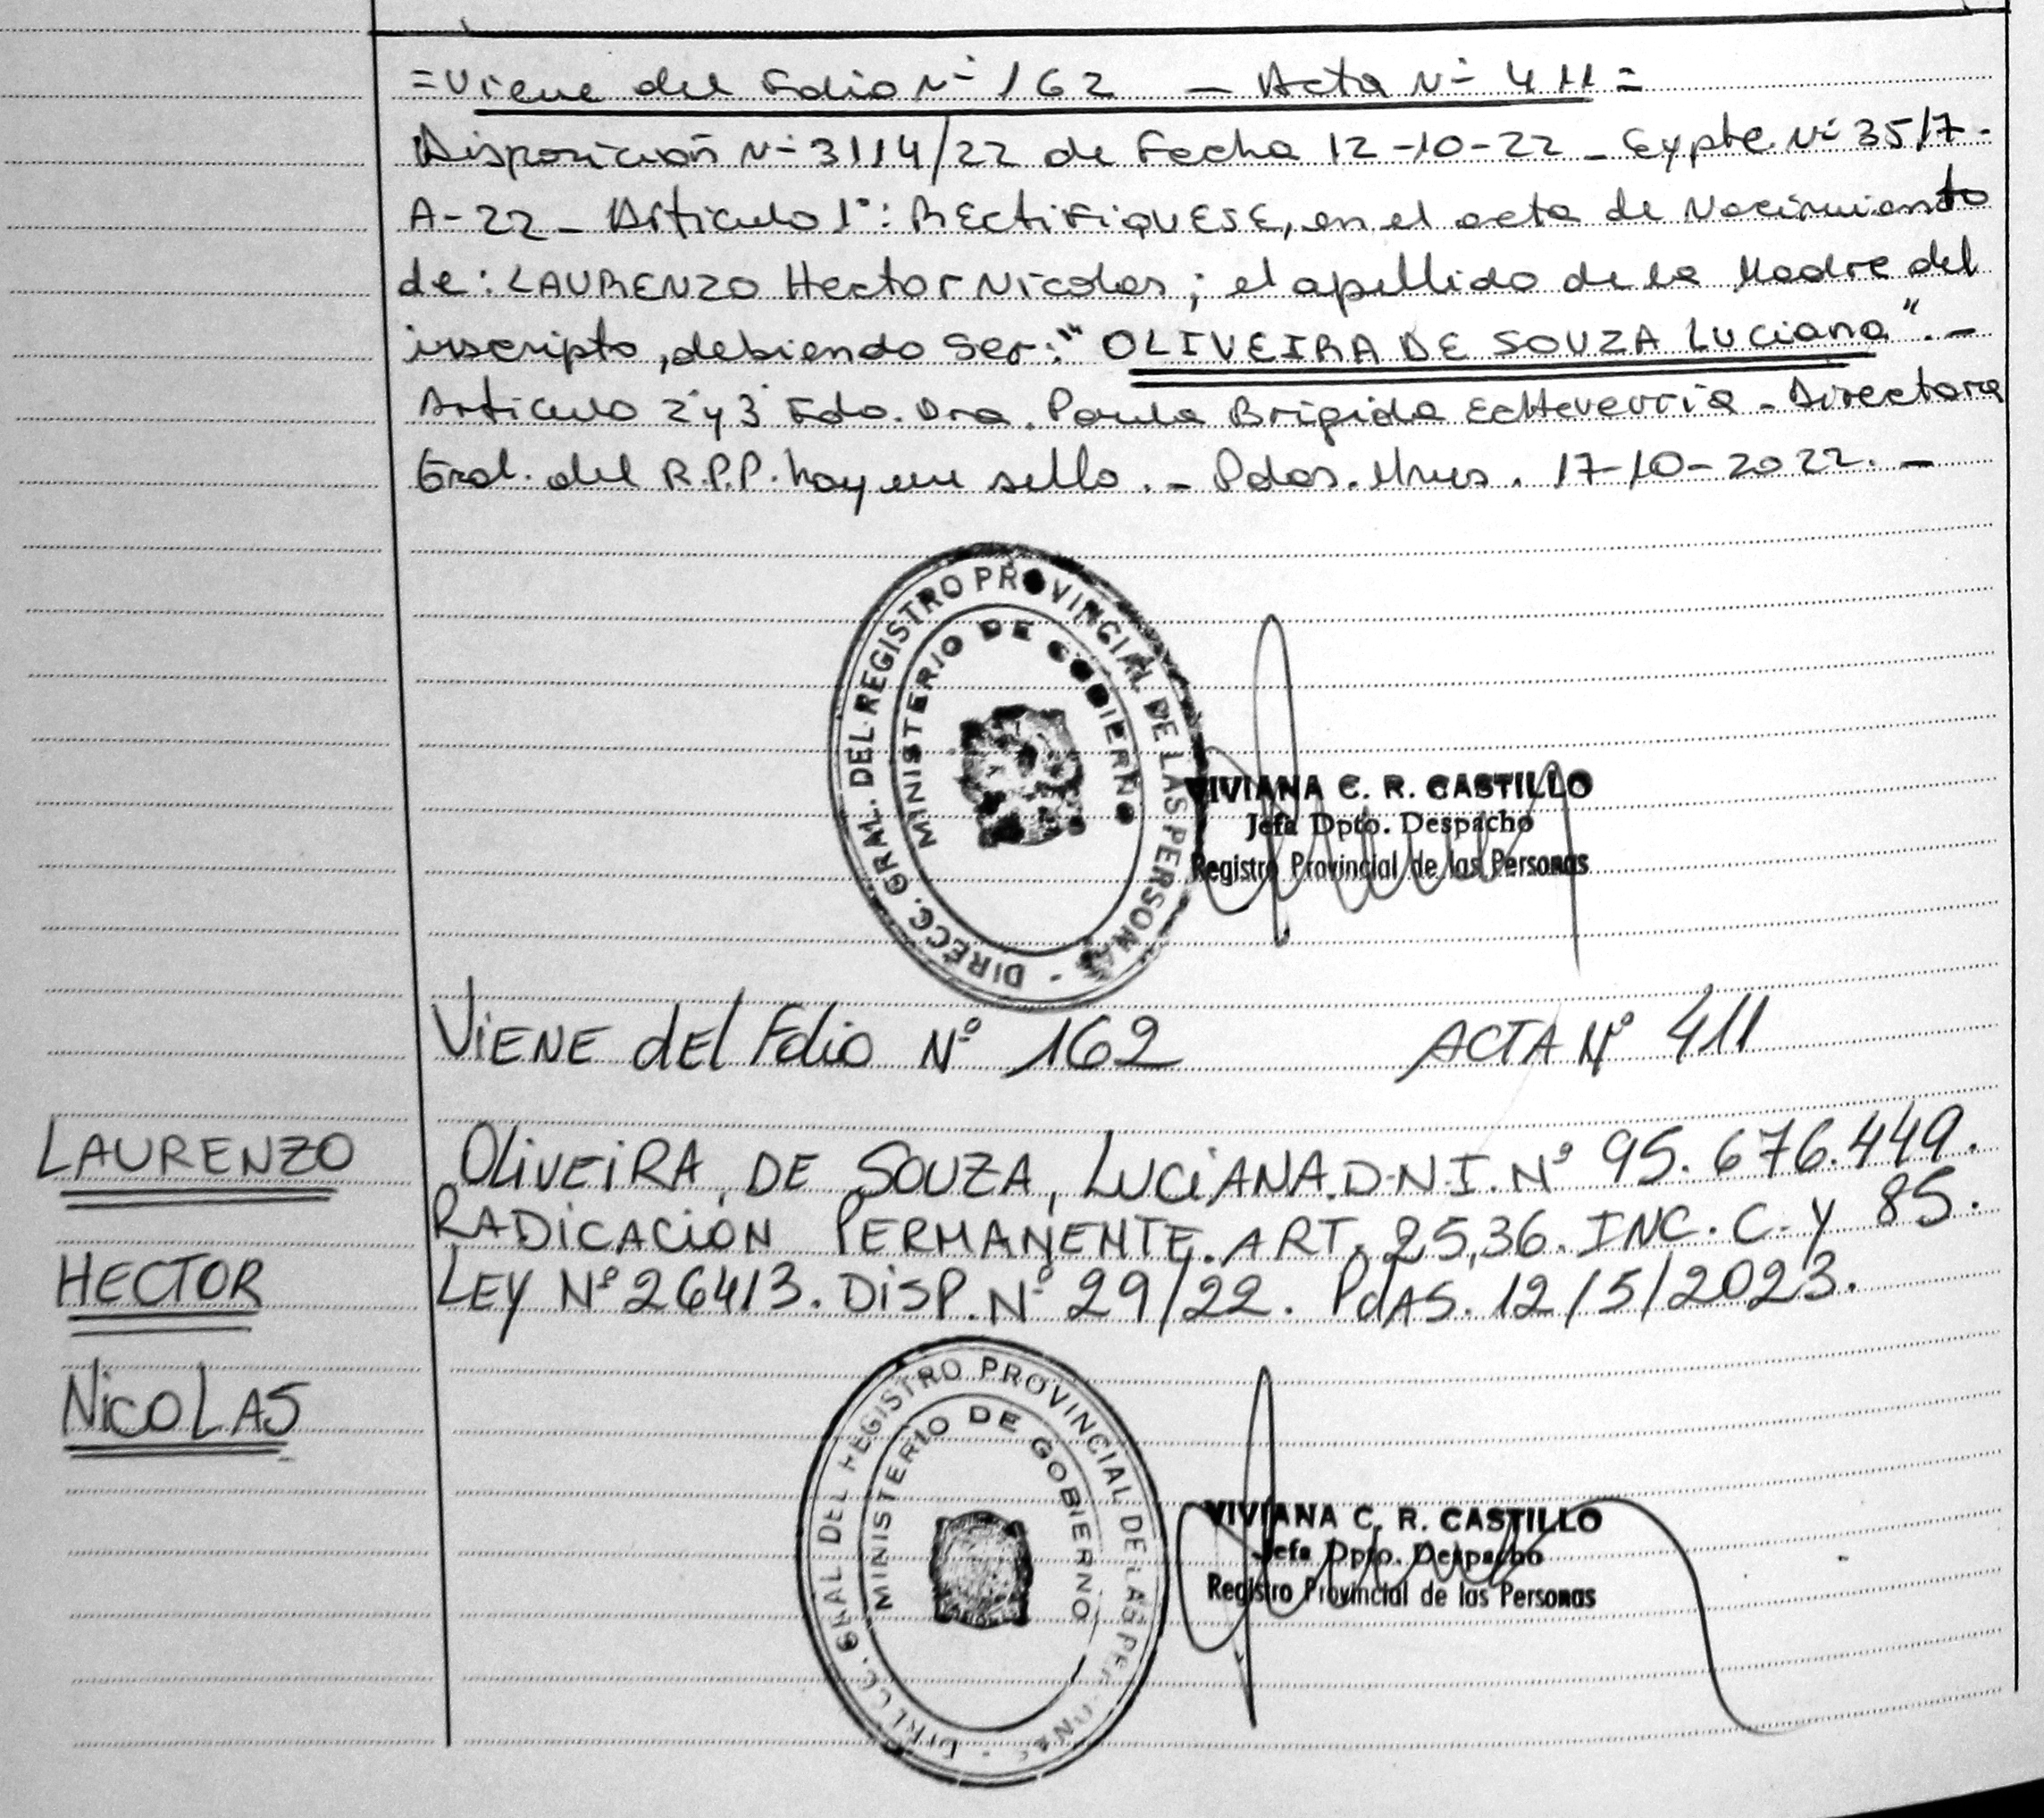 =Viene del Folio Nº 162 — Acta Nº 411=
Disposición Nº 3114/22 de Fecha 12-10-22 _ Expte Nº 3517-
A-22 _ Articulo 1°: RECTIFIQUESE, en el acta de Nacimiento
de: LAURENZO Hector Nicolas; el apellido de la Madre del
inscripto, debiendo Ser: "OLIVEIRA DE SOUZA Luciana". —
Articulo 2 y 3 Fdo. Dra. Paula Brigida Echeverria - Directora
Gral. del R.P.P. hay un sello. _ Pdas. Mnes. 17-10-2022. —
DIRECC. GRAL. DEL REGISTRO PROVINCIAL DE LAS PERSONAS -
MINISTERIO DE GOBIERNO
VIVIANA C. R. CASTILLO
Jefa Dpto. Despacho
Registro Provincial de las Personas
VIENE dEl Folio Nº 162 ACTA Nº 411
LAURENZO
HECTOR
NicoLAS
OLiVEiRA, DE SOUZA, LUCiANA. D.N.I. Nº 95.676.449.
RADICACION PERMANENTE. ART. 25,36. INC. C. y 85.
LEY Nº 26413. DiSP. Nº 29/22. PdAS. 12/5/2023.
DIRECC. GRAL DEL REGISTRO PROVINCIAL DE LAS PERSONAS -
MINISTERIO DE GOBIERNO
VIVIANA C. R. CASTILLO
Jefa Dpto. Despacho
Registro Provincial de las Personas